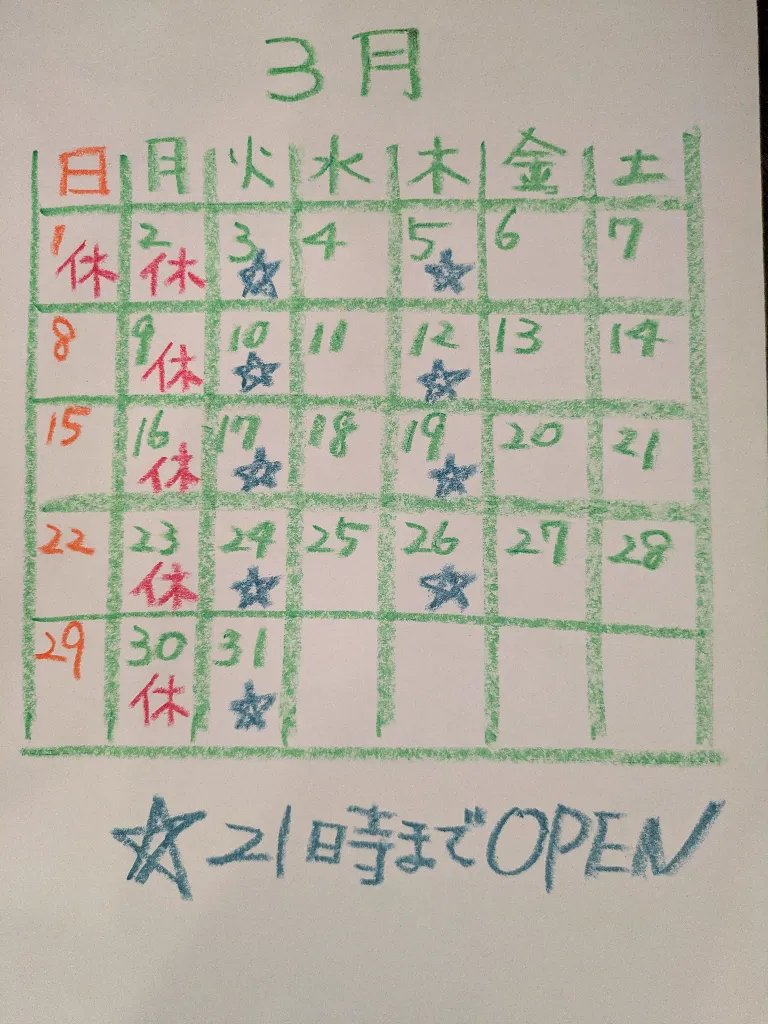 3月
日 月 火 水 木 金 土
1 2 3 4 5 6 7
休 休 ☆ ☆
8 9 10 11 12 13 14
休 ☆ ☆
15 16 17 18 19 20 21
休 ☆ ☆
22 23 24 25 26 27 28
休 ☆ ☆
29 30 31
休 ☆
☆21時までOPEN